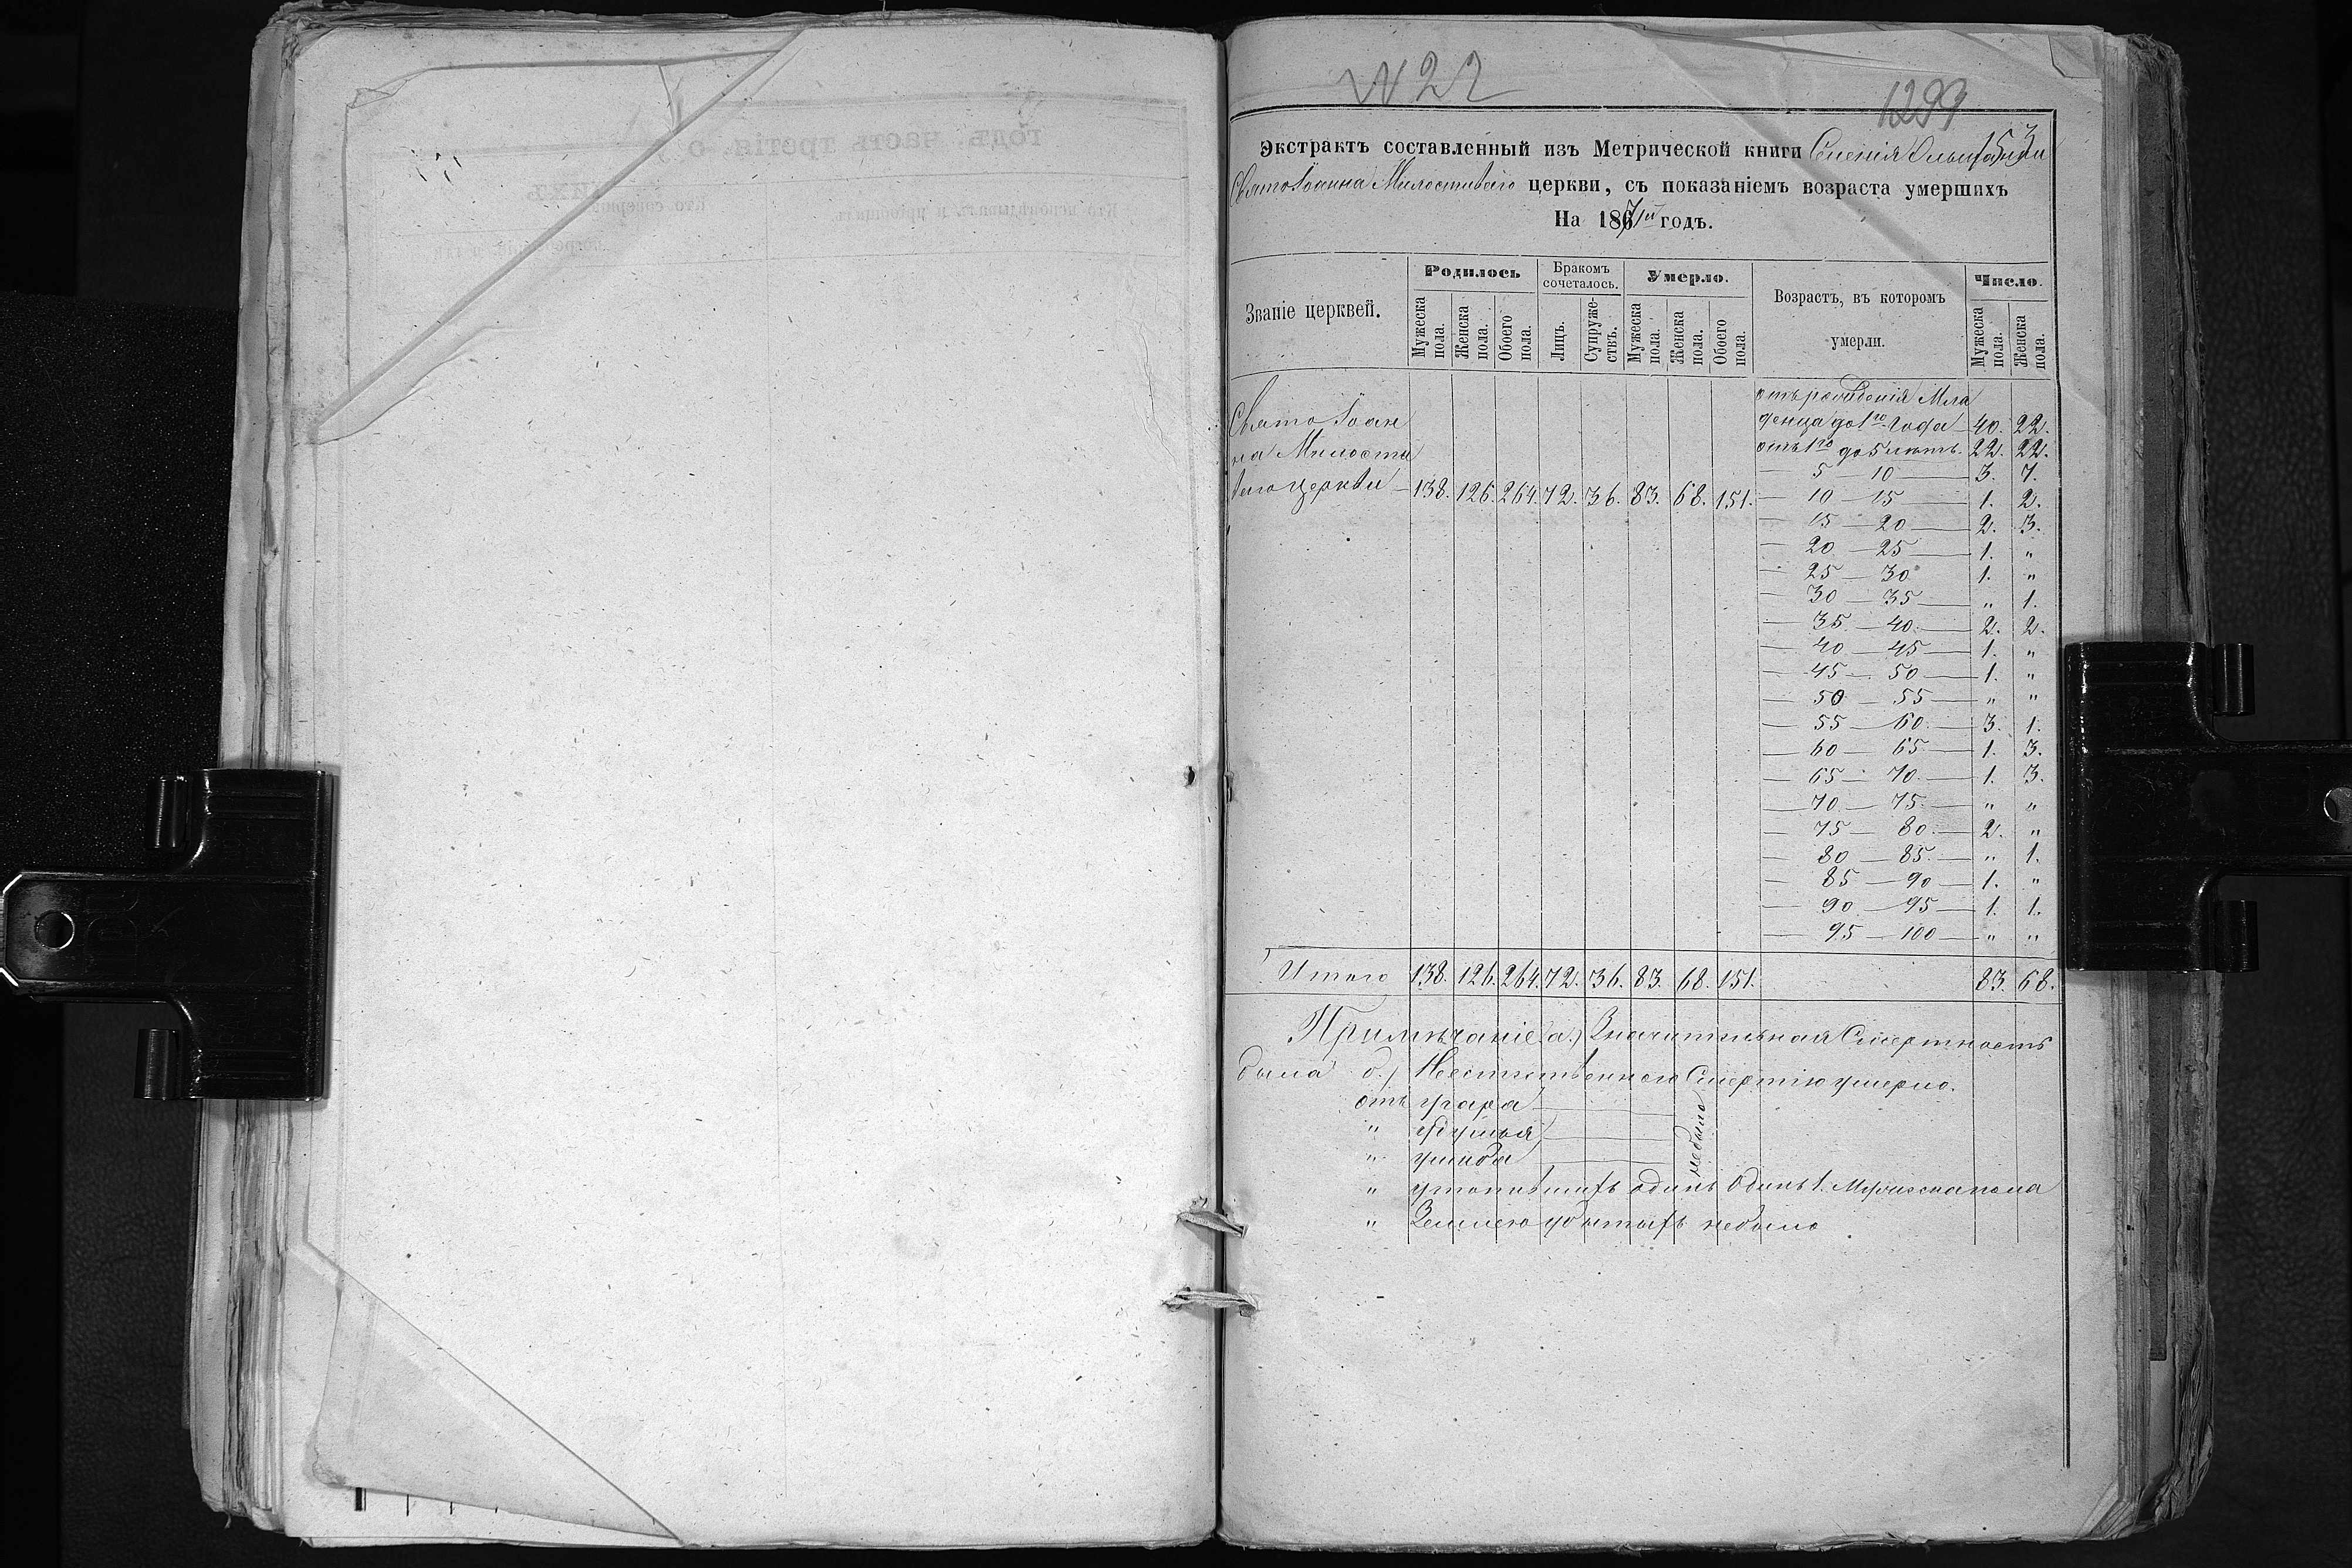 N 22
1299
153
Экстрактъ составленный изъ Метрической книги
Свято Іоанна Милостиваго церкви, съ показаніемъ возраста умершихъ
На 1867й годъ.
Званіе церквей. Родилось Бракомъ сочеталось. Умерло. Возрастъ, въ которомъ умерли. Число.
Мужеска пола. Женска пола. Обоего пола. Лицъ. Супружествъ. Мужеска пола. Женска пола. Обоего пола. Мужеска пола. Женска пола.
отъ рожденія Мла
Свято Іоан денца до 1го года 40. 22.
на Милости отъ 1го до 5 лѣтъ. 22. 22.
— 5 — 10 — 3. 7.
ваго церкви — 138. 126. 264. 72. 36. 83. 68. 151. — 10 — 15 — 1. 2.
— 15 — 20 — 2. 3.
— 20 — 25 — 1. "
— 25 — 30 1. "
— 30 — 35 — " 1.
— 35 — 40 — 2. 2.
— 40 — 45 — 1. "
— 45 — 50 — 1. "
— 50 — 55 — " "
— 55 — 60 — 3. 1.
— 60 — 65 — 1. 3.
— 65 — 70 — 1. 3.
— 70 — 75 — " "
— 75 — 80 — 2. "
— 80 — 85 — " 1.
— 85 — 90 — 1. "
— 90 — 95 — 1. 1.
— 95 — 100 — " "
Итого 138. 126. 264. 72. 36. 83. 68. 151. 83. 68.
Примѣчаніе а.) Значительная Смертность
была б.) Неестественною Смертію умерло.
отъ угара
" удушья
" ушиба
небыло
" утопившихъ одинъ Одинъ 1. Мужеска пола
" Землею убитыхъ небыло